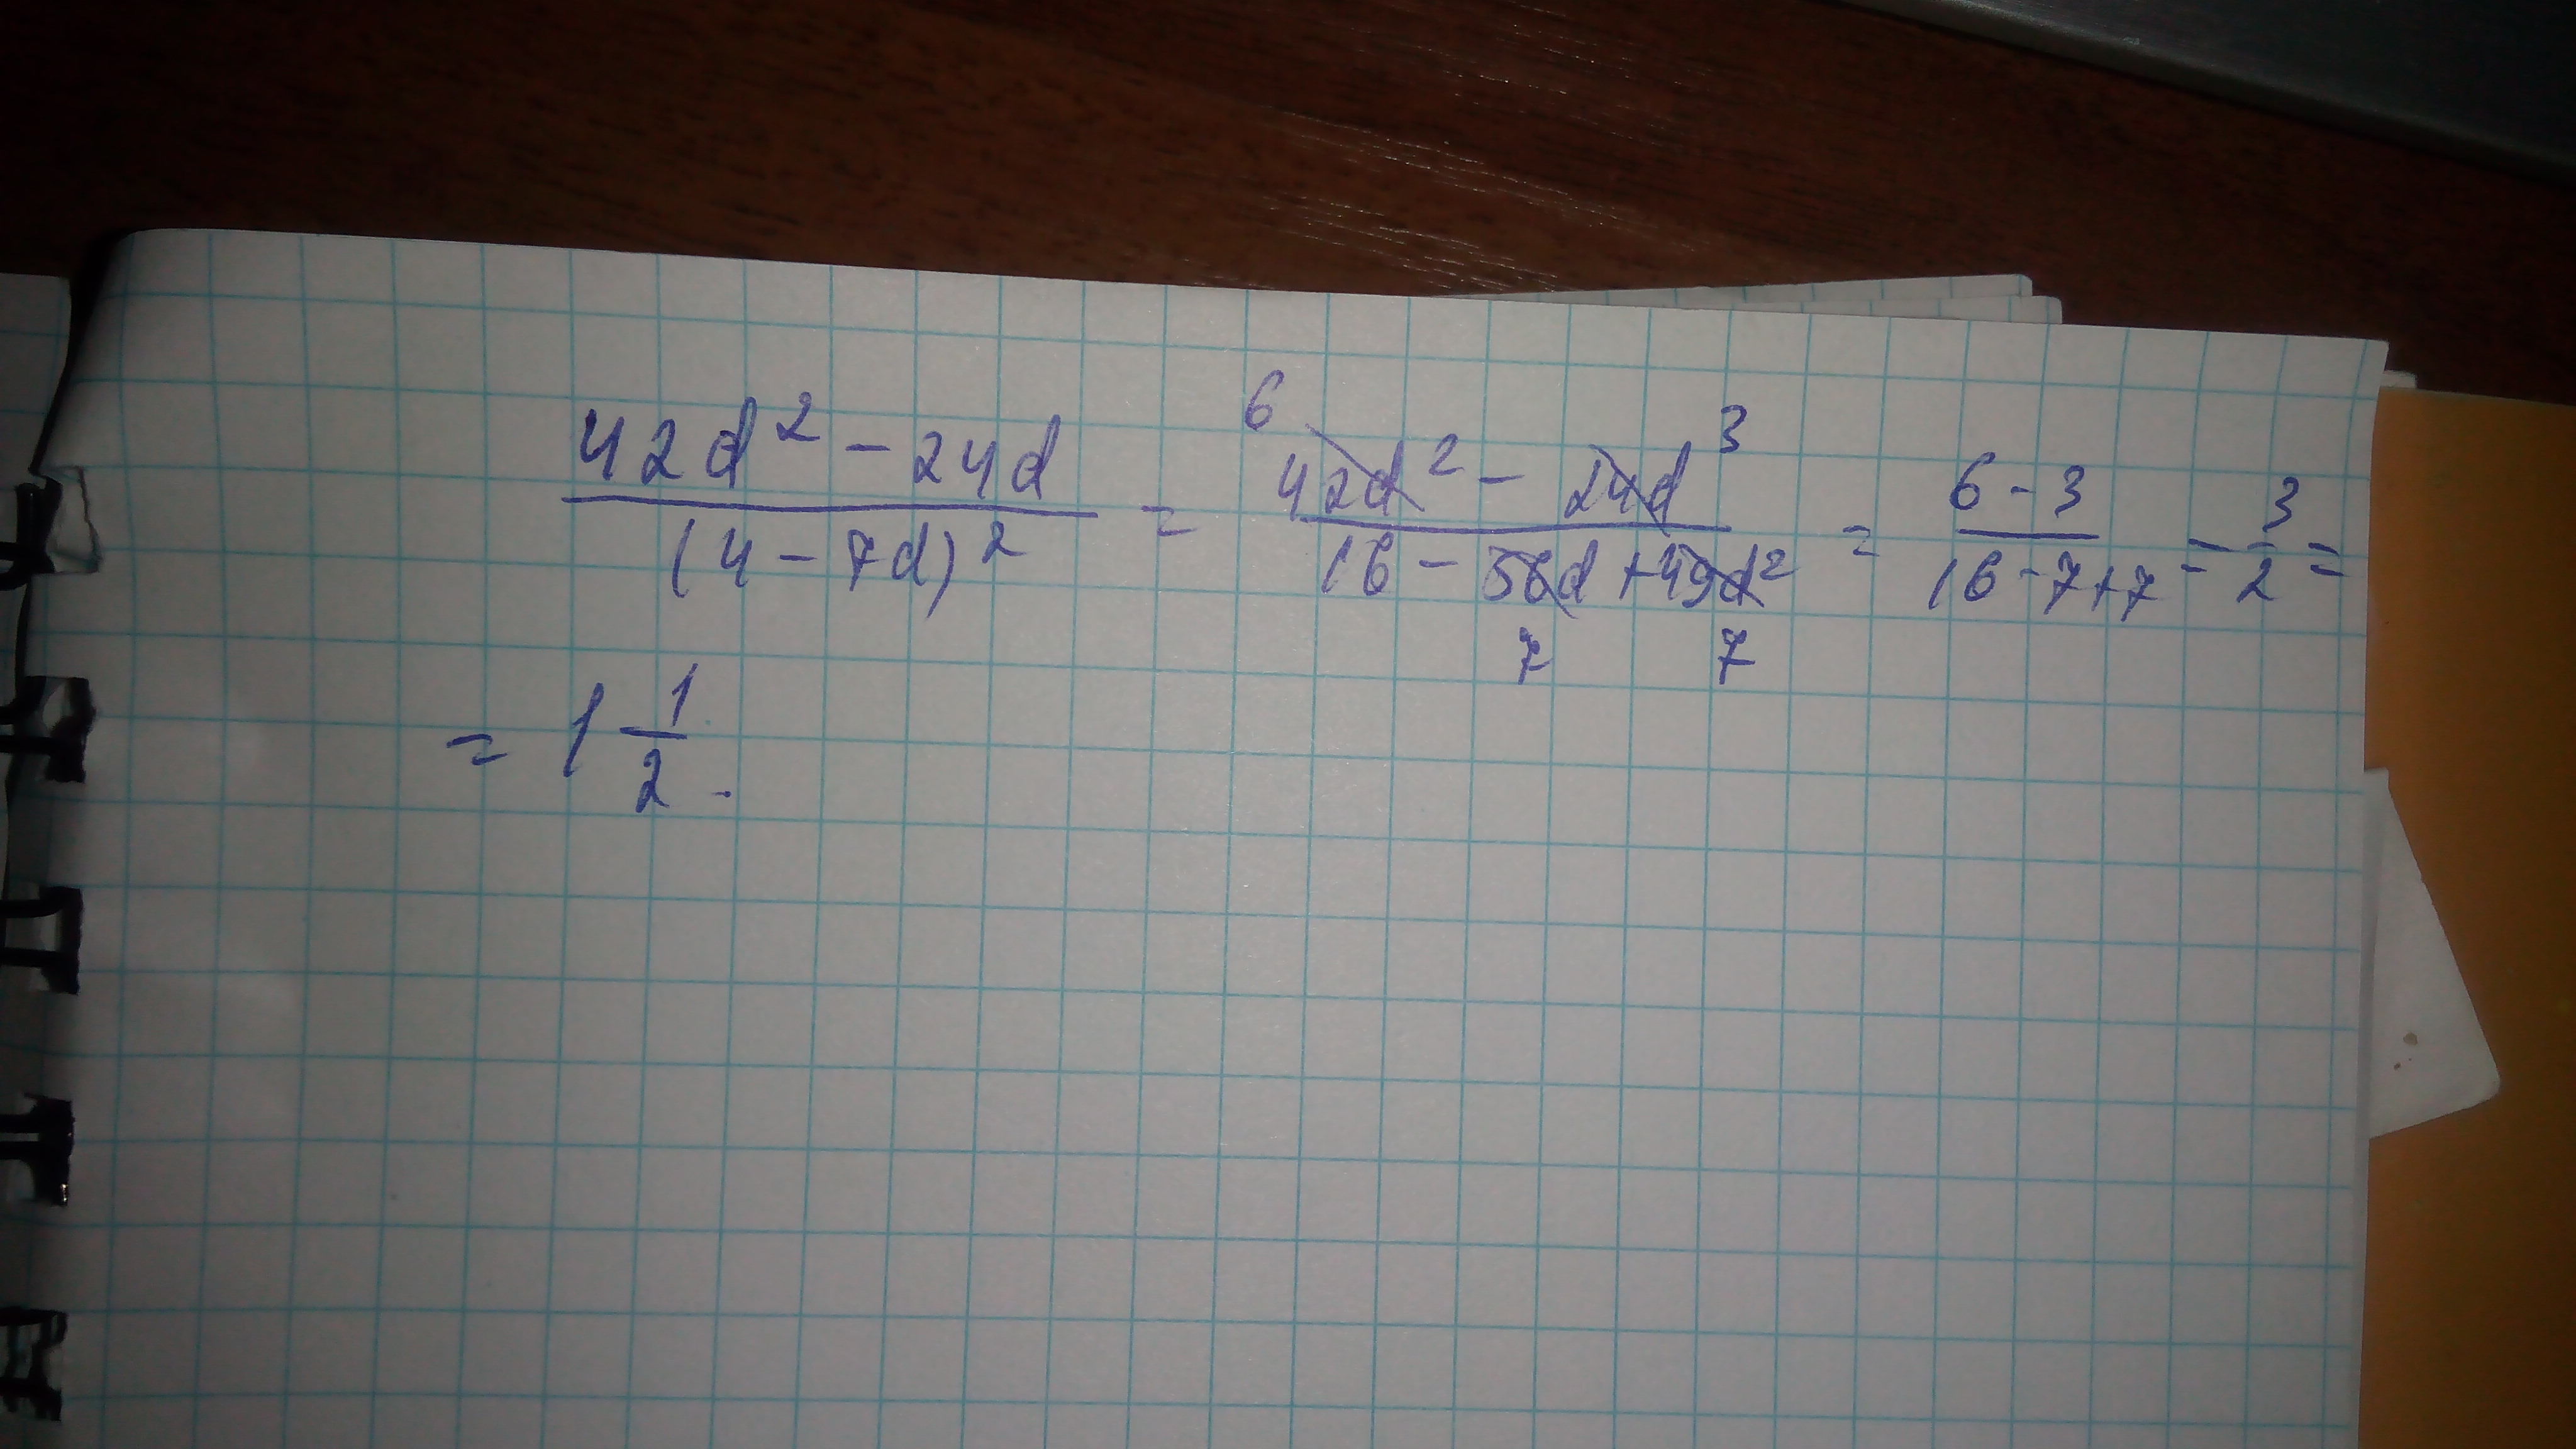 (42d² - 24d)/(4 - 7d)² = (42d² - 24d)/(16 - 56d + 49d²) = (6 - 3)/(16 - 7 + 7) = 3/2 =
6 3
7 7
= 1 1/2.